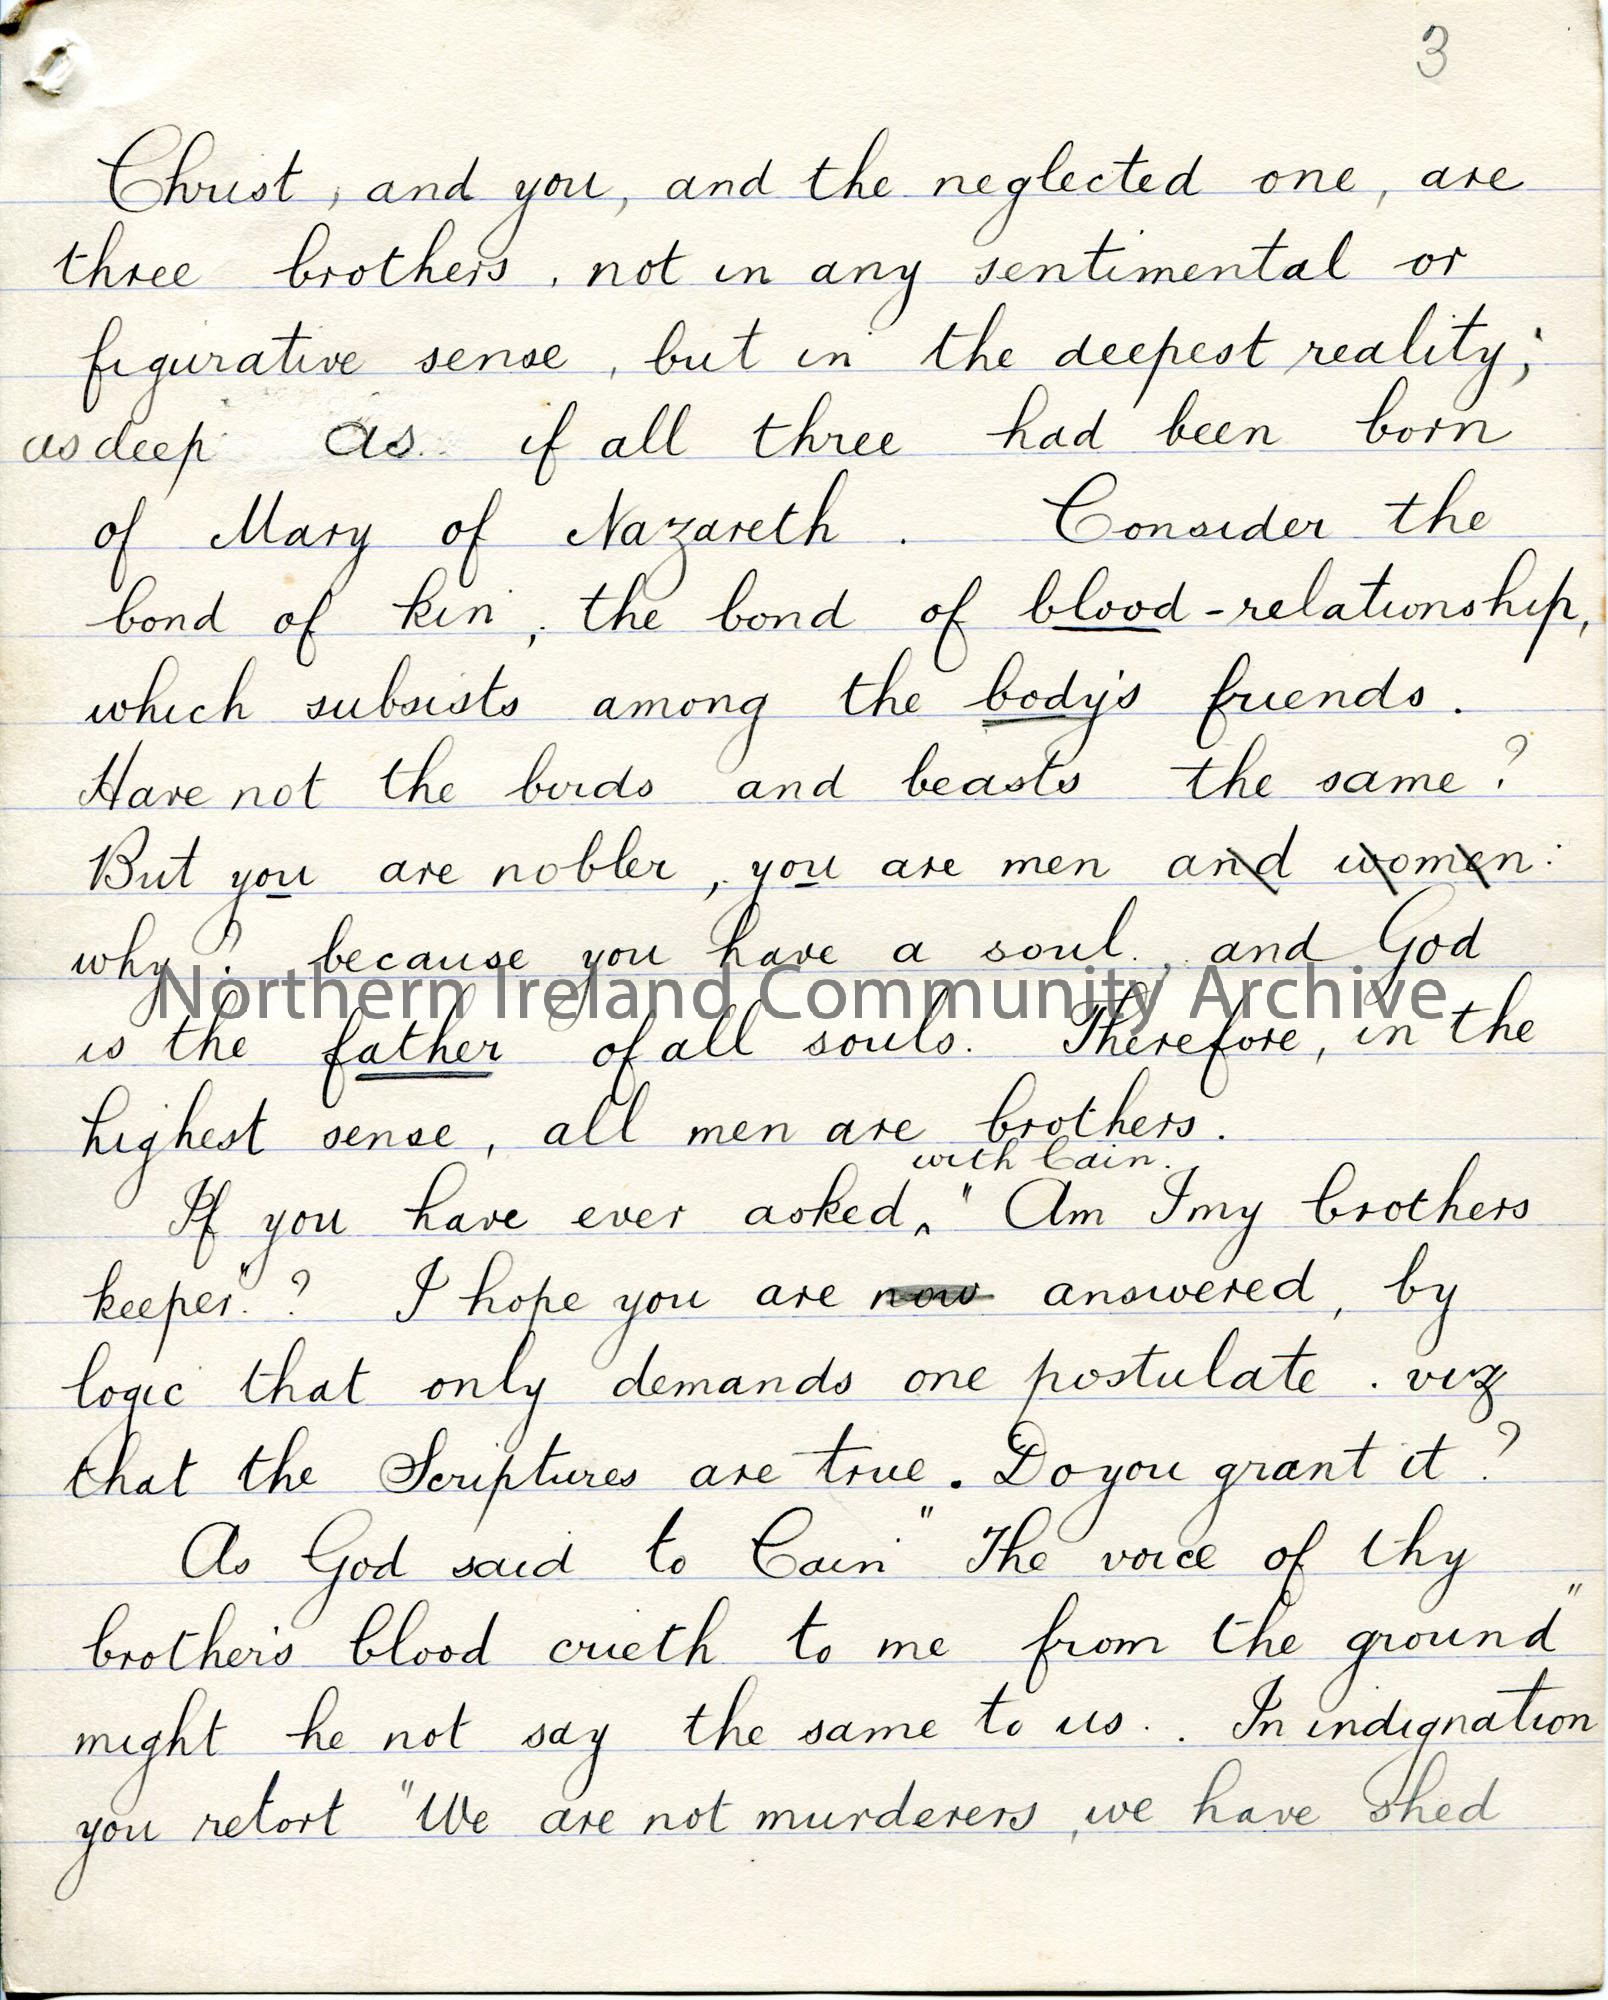 3
Christ, and you, and the neglected one, are
three brothers, not in any sentimental or
figurative sense, but in the deepest reality;
as deep as if all three had been born
of Mary of Nazareth. Consider the
bond of kin, the bond of blood-relationship,
which subsists among the body's friends.
Have not the birds and beasts the same?
But you are nobler, you are men and women:
why? because you have a soul, and God
Northern Ireland Community Archive
is the father of all souls. Therefore, in the
highest sense, all men are brothers.
with Cain.
If you have ever asked, "Am I my brothers
keeper"? I hope you are now answered, by
logic that only demands one postulate. viz
that the Scriptures are true. Do you grant it?
As God said to Cain "The voice of thy
brother's blood crieth to me from the ground"
might he not say the same to us. In indignation
you retort "We are not murderers, we have shed